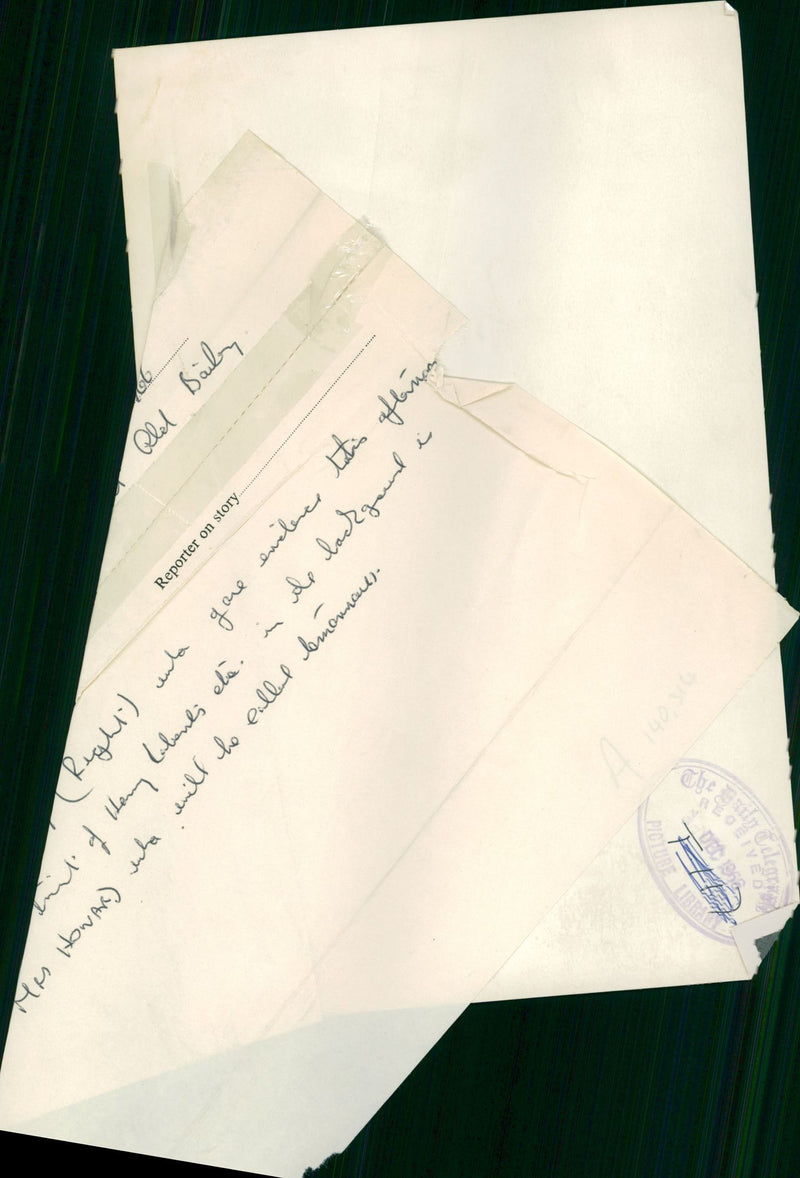 Old Bailey.
Reporter on story
(Right) who gave evidence this afternoon
of Harry Roberts etc. in the background is
Mrs HOWARD who will be called tomorrow.
A 140.316
The Daily Telegraph
RECEIVED
DEC 1966
PICTURE LIBRARY